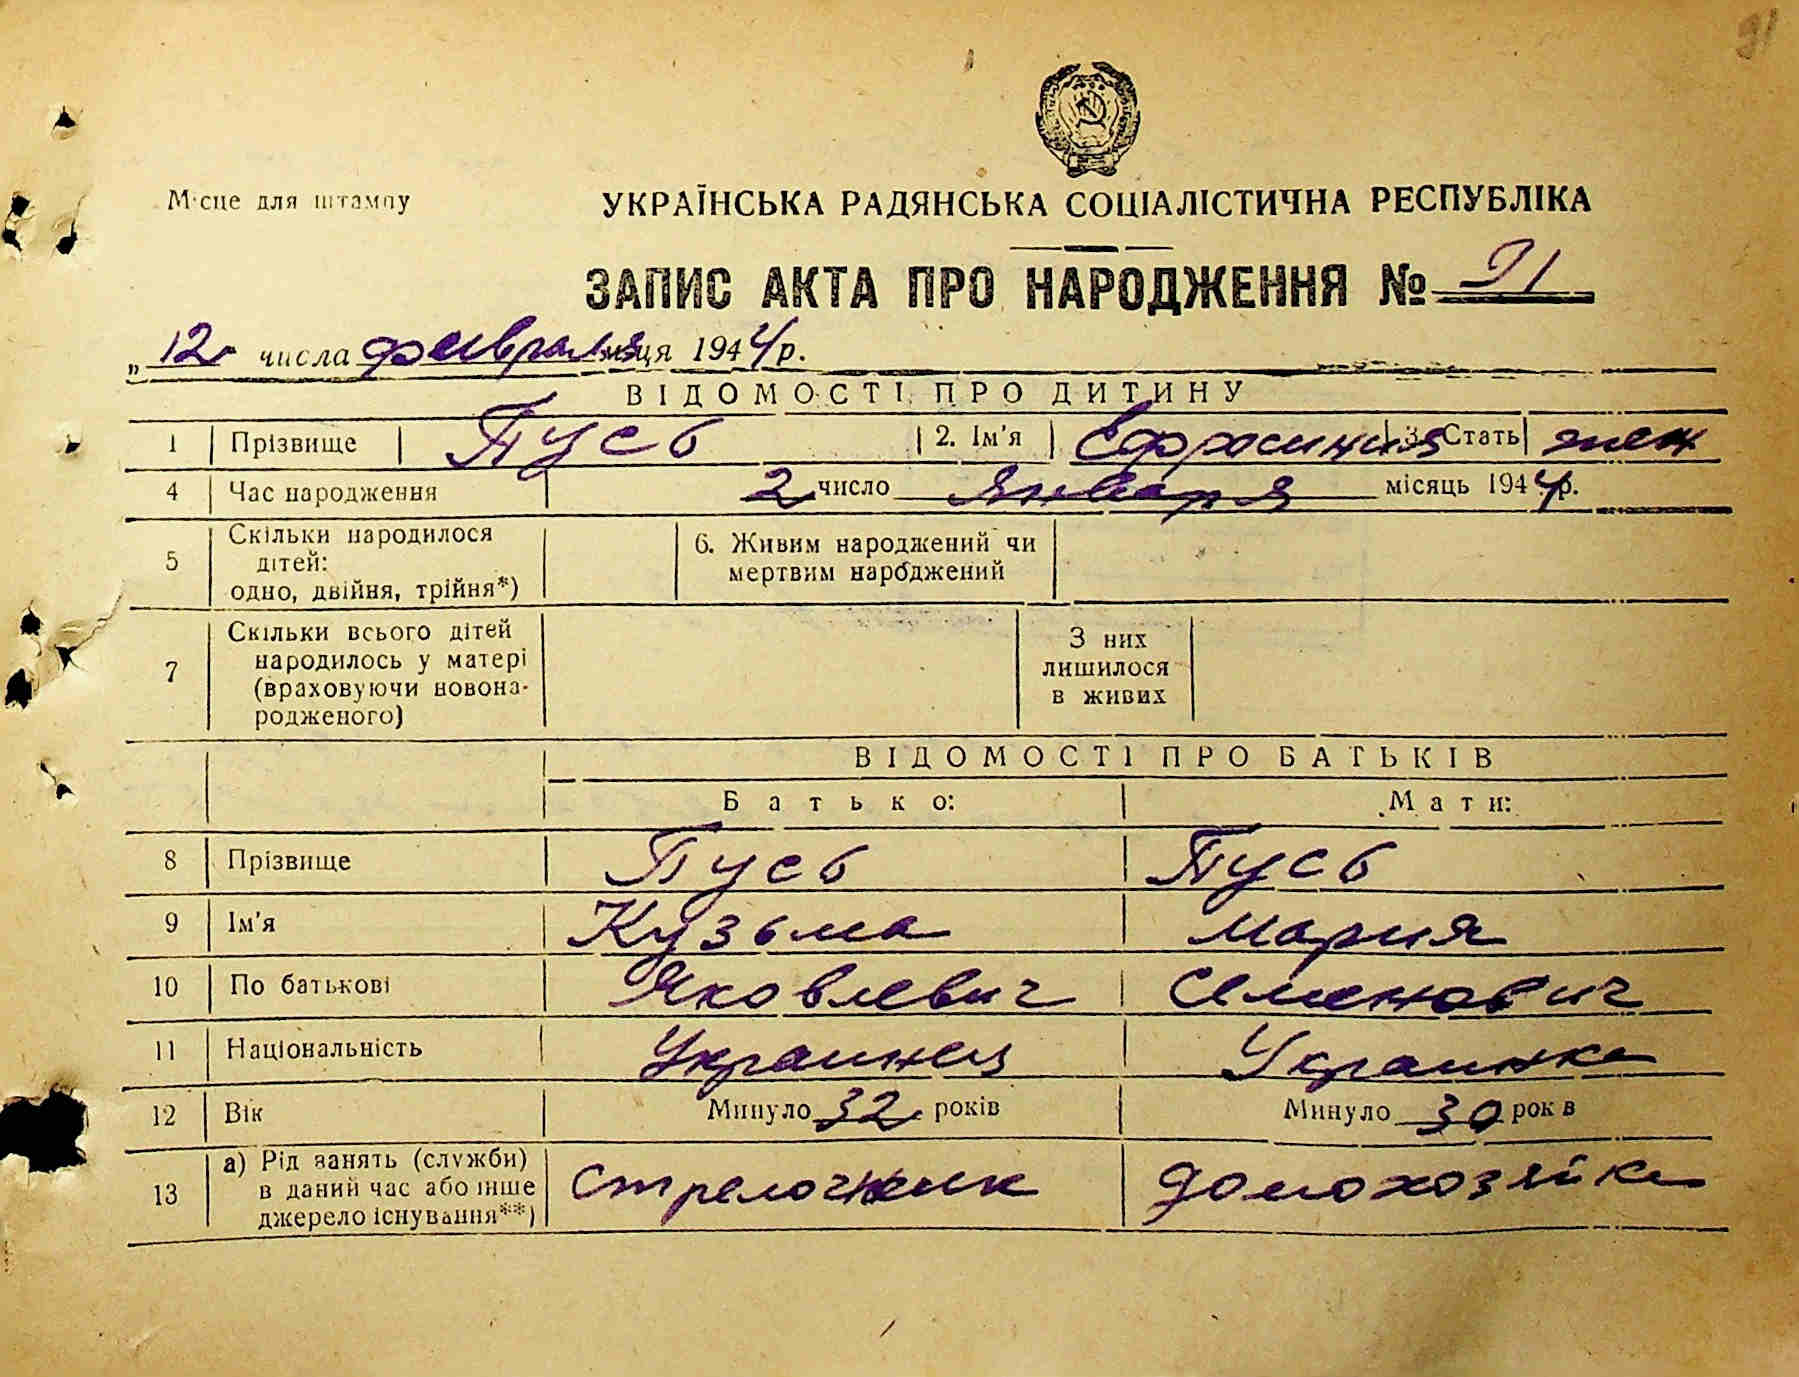 91
Місце для штампу
УКРАЇНСЬКА РАДЯНСЬКА СОЦІАЛІСТИЧНА РЕСПУБЛІКА
ЗАПИС АКТА ПРО НАРОДЖЕННЯ № 91
„ 12 числа февраля місяця 1944 р.
ВІДОМОСТІ ПРО ДИТИНУ
1 Прізвище Пусь 2. Ім'я Ефросиния 3. Стать жен
4 Час народження 2 число января місяць 1944 р.
5 Скільки народилося
дітей:
одно, двійня, трійня*)
6. Живим народжений чи
мертвим народжений
7 Скільки всього дітей
народилось у матері
(враховуючи новона-
родженого)
З них
лишилося
в живих
ВІДОМОСТІ ПРО БАТЬКІВ
Батько: Мати:
8 Прізвище Пусь Пусь
9 Ім'я Кузьма Мария
10 По батькові Яковлевич Семенович
11 Національність Украинец Украинка
12 Вік Минуло 32 років Минуло 30 років
13 а) Рід занять (служби)
в даний час або інше
джерело існування**)
Стрелочник домохозяйка